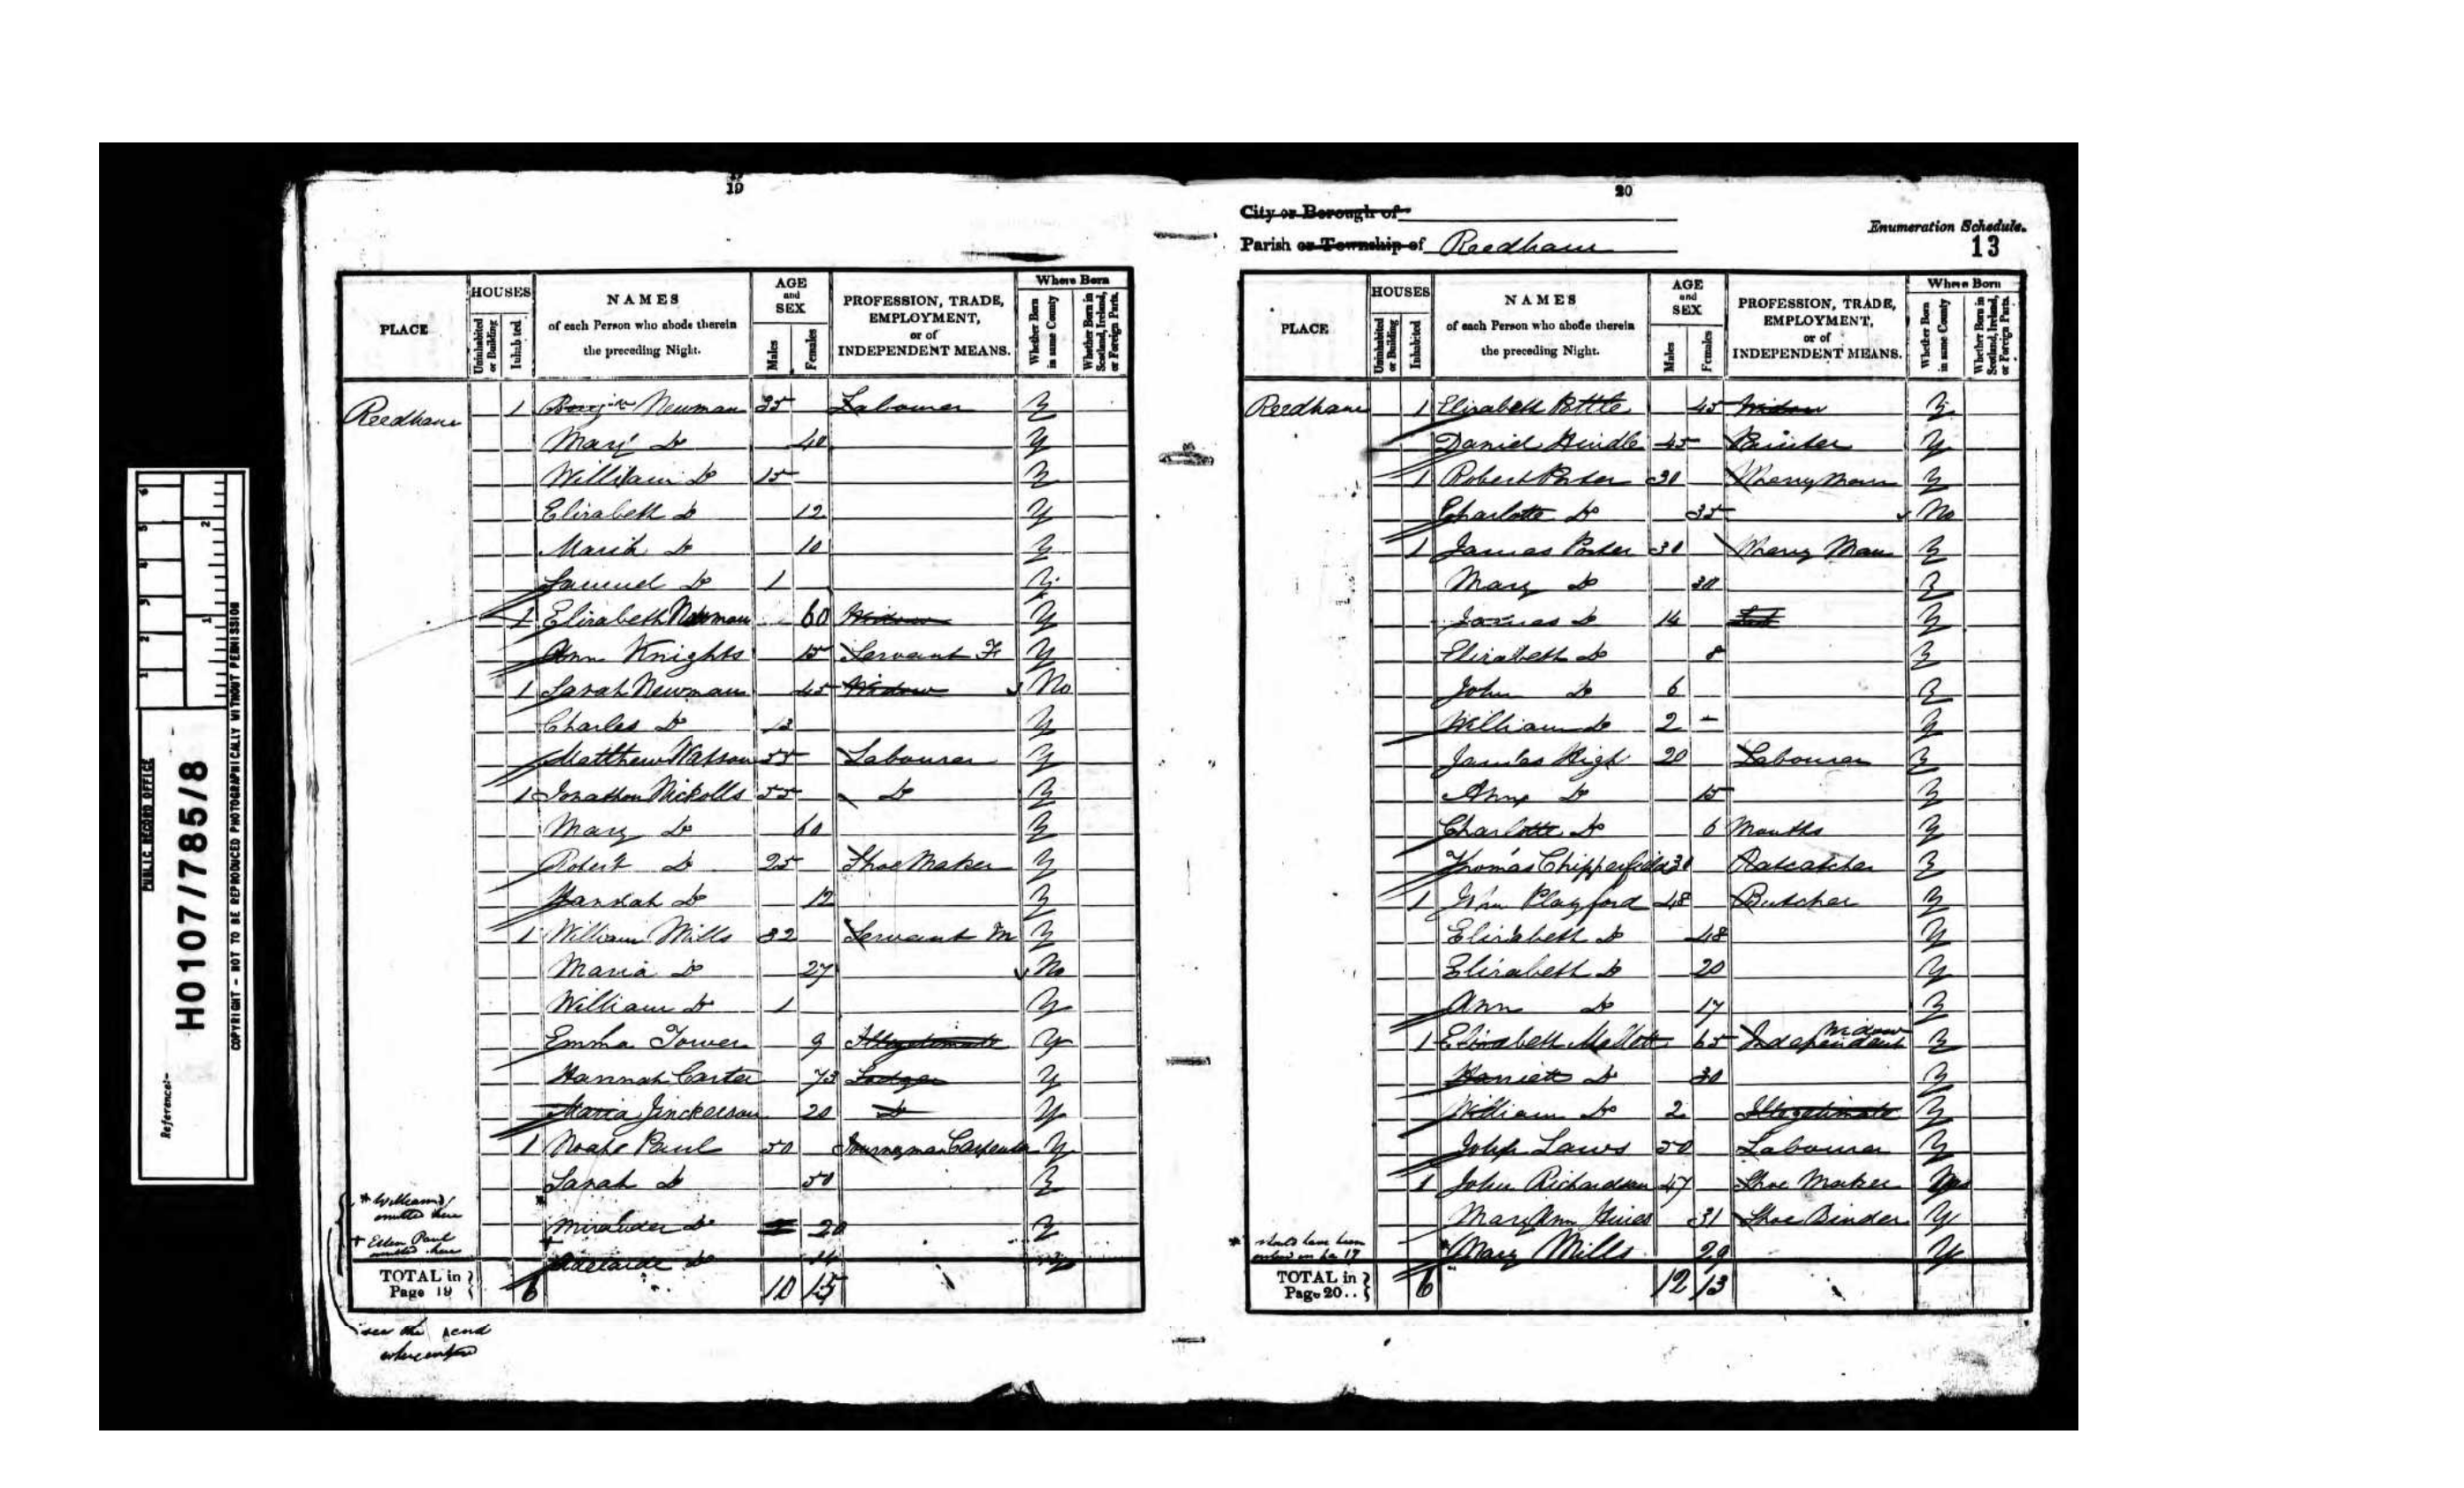 19
HOUSES
AGE and SEX
Where Born
PLACE
Uninhabited or Building
Inhabited
NAMES of each Person who abode therein the preceding Night.
Males
Females
PROFESSION, TRADE, EMPLOYMENT, or of INDEPENDENT MEANS.
Whether Born in same County
Whether Born in Scotland, Ireland, or Foreign Parts.
Reedham 1 Newman 35 Labourer Y
Mary Do 40 Y
William Do 15 Y
Elizabeth Do 12 Y
Maria Do 10 Y
Samuel Do 1 Y
1 Elizabeth Newman 60 Widow Y
Ann Knights 15 Servant F Y
1 Sarah Newman 45 Widow No
Charles Do Y
Matthew Watson 55 Labourer Y
1 Jonathon Nickolls 55 Do Y
Mary Do 60 Y
Robert Do 25 Shoe Maker Y
Hannah Do 12 Y
1 William Mills 32 Servant M Y
Maria Do 27 No
William Do 1 Y
Emma Tower 9 Illegetimate Y
Hannah Carter 73 Lodger Y
Maria Jinckerson 20 Do Y
1 Noah Paul 50 Journeyman Carpenter Y
Sarah Do 50 Y
* William
omitted here
Do 20 Y
+ Ellen Paul
omitted here
Adelaide Do 14 Y
TOTAL in Page 19 6 10 15
see the end
where
20
City or Borough of
Parish or Township of Reedham
Enumeration Schedule.
13
HOUSES
AGE and SEX
Where Born
PLACE
Uninhabited or Building
Inhabited
NAMES of each Person who abode therein the preceding Night.
Males
Females
PROFESSION, TRADE, EMPLOYMENT, or of INDEPENDENT MEANS.
Whether Born in same County
Whether Born in Scotland, Ireland, or Foreign Parts.
Reedham 1 Elizabeth Pottle 45 Widow Y
Daniel Hindle 45 Y
1 Robert Porter 30 Wherry Man Y
Charlotte Do 35 No
1 James Porter 30 Wherry Man Y
Mary Do 30 Y
James Do 14 Y
Elizabeth Do 8 Y
John Do 6 Y
William Do 2 – Y
James High 20 Labourer Y
Ann Do 15 Y
Charlotte Do 6 Months Y
Thomas Chipperfield 30 Ratcatcher Y
1 John Playford 48 Butcher Y
Elizabeth Do 48 Y
Elizabeth Do 20 Y
Ann Do 17 Y
1 Elizabeth Mallett 65 Independant Widow Y
Harriett Do 30 Y
William Do 2 Illegetimate Y
John Laws 50 Labourer Y
1 John Richardson 47 Shoe Maker Yes
Mary Ann Hines 31 Shoe Binder Y
* should have been
entered on pa 19
*Mary Mills 29 Y
TOTAL in Page 20.. 6 12 13
PUBLIC RECORD OFFICE
Reference:-
HO107/785/8
COPYRIGHT - NOT TO BE REPRODUCED PHOTOGRAPHICALLY WITHOUT PERMISSION
1 2 3 4 5 6
1 2